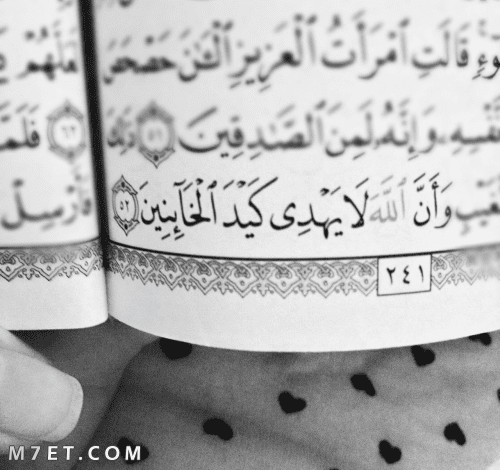 وءٍ قَالَتِ ٱمْرَأَتُ ٱلْعَزِيزِ ٱلْـَٰٔنَ حَصْحَصَ
نَّفْسِهِۦ وَإِنَّهُۥ لَمِنَ ٱلصَّـٰدِقِينَ ٥١ ذَٰلِكَ
لْغَيْبِ وَأَنَّ ٱللَّهَ لَا يَهْدِى كَيْدَ ٱلْخَآئِنِينَ ٥٢
٢٤١
فَلَمَّا
فَأَرْسِلْ
M7ET.COM